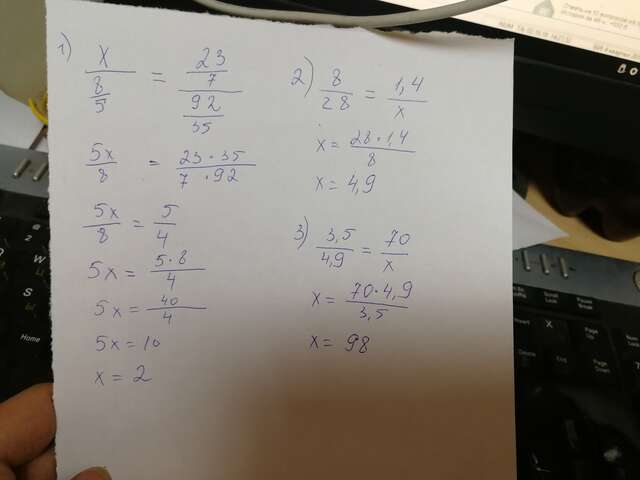 1) x / (8/5) = (23/7) / (92/35)
5x/8 = (23 · 35)/(7 · 92)
5x/8 = 5/4
5x = (5·8)/4
5x = 40/4
5x = 10
x = 2
2) 8/28 = 1,4/x
x = (28 · 1,4)/8
x = 4,9
3) 3,5/4,9 = 70/x
x = (70·4,9)/3,5
x = 98
Home